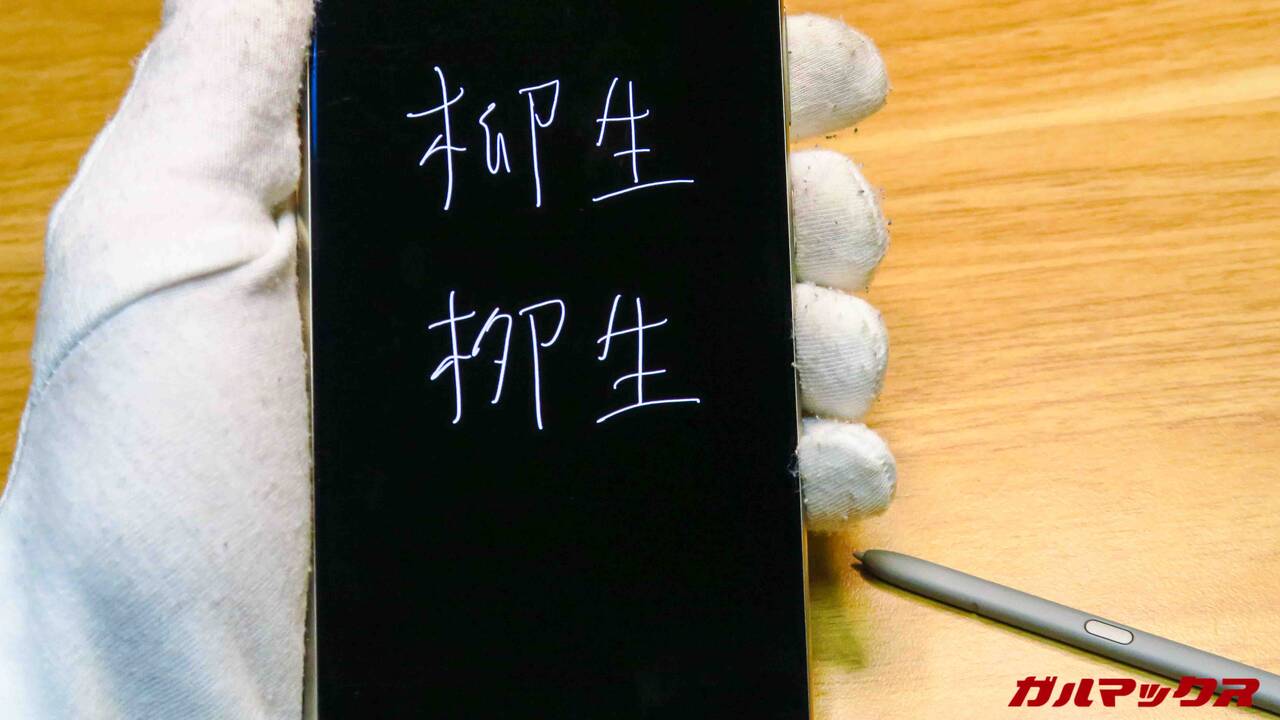 柳生
柳生
ガルマックス